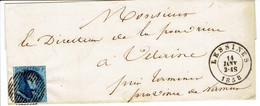 Monsieur
le Directeur de la poudrière
à Vedrin
près Namur
province de Namur
LESSINES
14
JANV
3-4S
1858